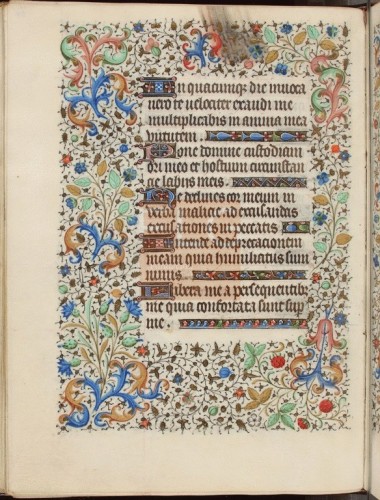 In quacumq; die invoca
vero te velociter exaudi me
multiplicabis in anima mea
virtutem
Pone domine custodiam
ori meo et hostium circunstan
cie labijs meis
Ne declines cor meum in
verba malicie ad excusandas
excusationes in peccatis
Intende ad deprecacionem
meam quia humiliatus sum
nimis
Libera me a persequentib;
me quia confortati sunt sup
me